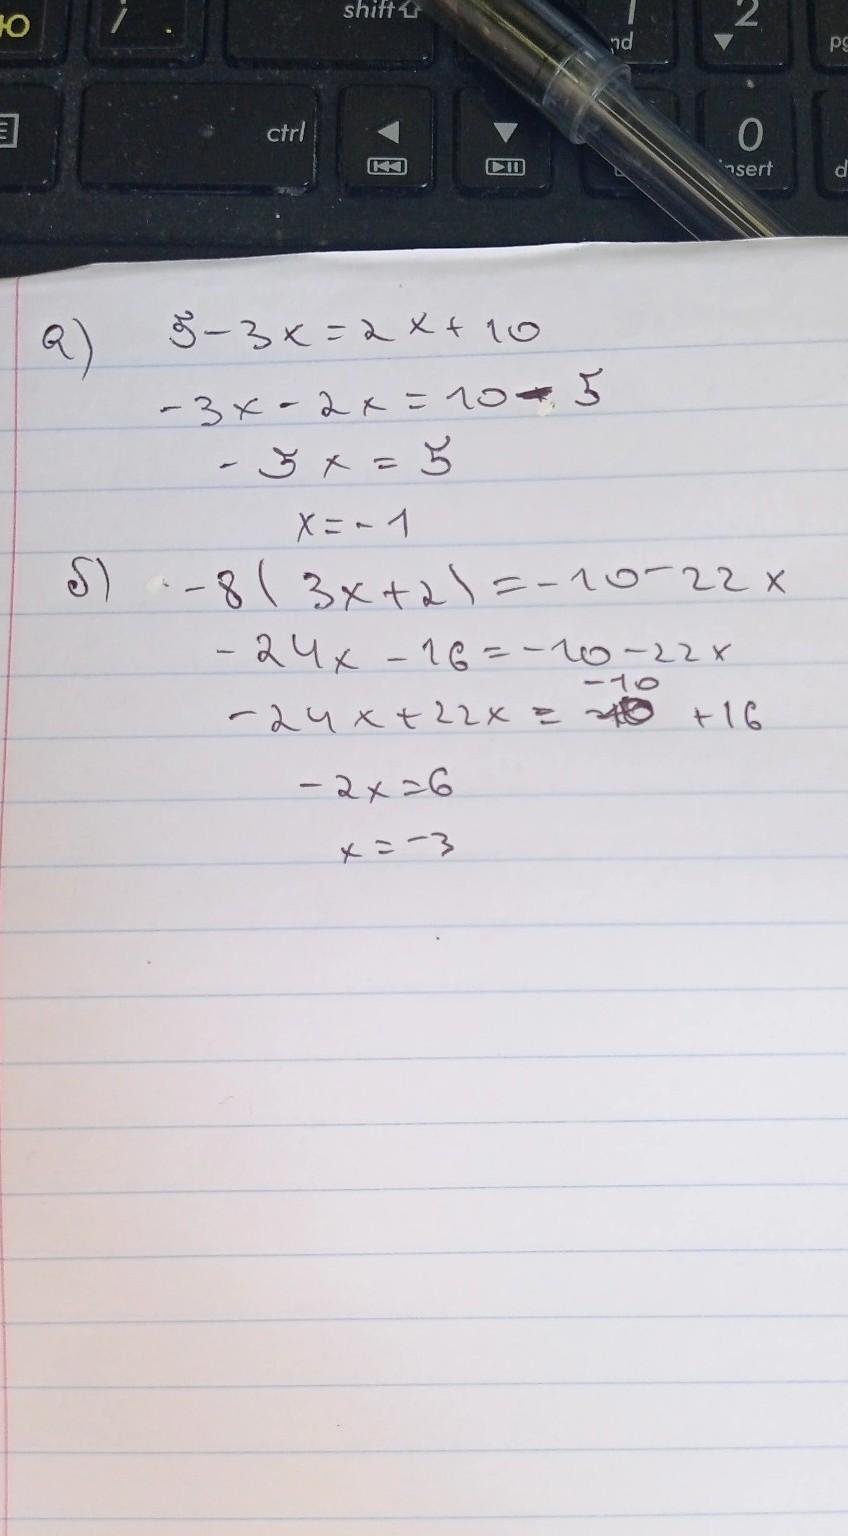 Ю
shift
1
nd
2
ctrl
0
insert
a) 5-3x=2x+10
-3x-2x=10-5
-5x=5
x=-1
б) -8(3x+2)=-10-22x
-24x-16=-10-22x
-10
-24x+22x= +16
-2x=6
x=-3